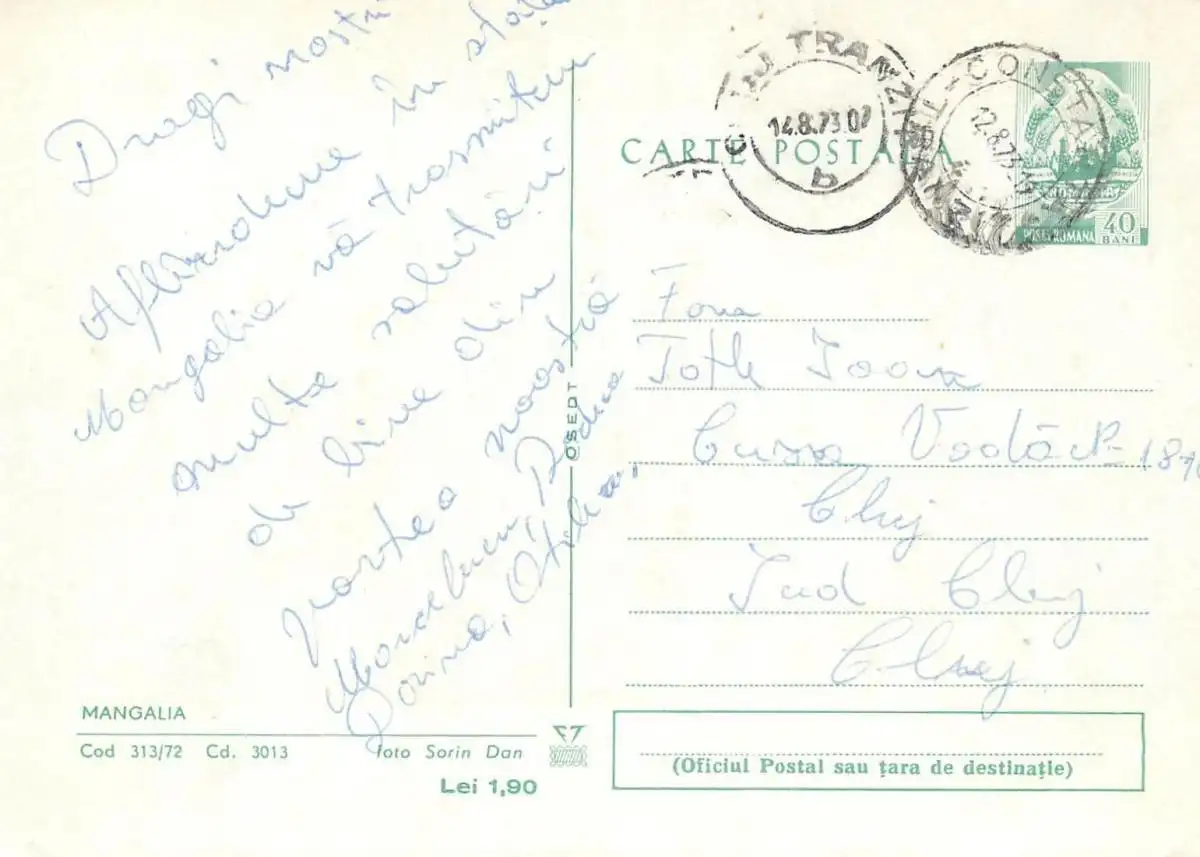 Dragi noștri
Aflîndune în stați
Mangalia vă trasmitem
multe salutări
de bine din
partea noastră
Rodica
Dorina, Otilia,
CARTE POSTALA
TRANZIT
14.8.73.07
b
CONSTANȚA
12.8.73
TRANZIT
POSTA ROMANA
40
BANI
Fam
Toth Ioan
Cuza Vodă
Cluj
Jud Cluj
Cluj
OSEDT
MANGALIA
Cod 313/72 Cd. 3013 foto Sorin Dan
Lei 1,90
(Oficiul Postal sau țara de destinație)